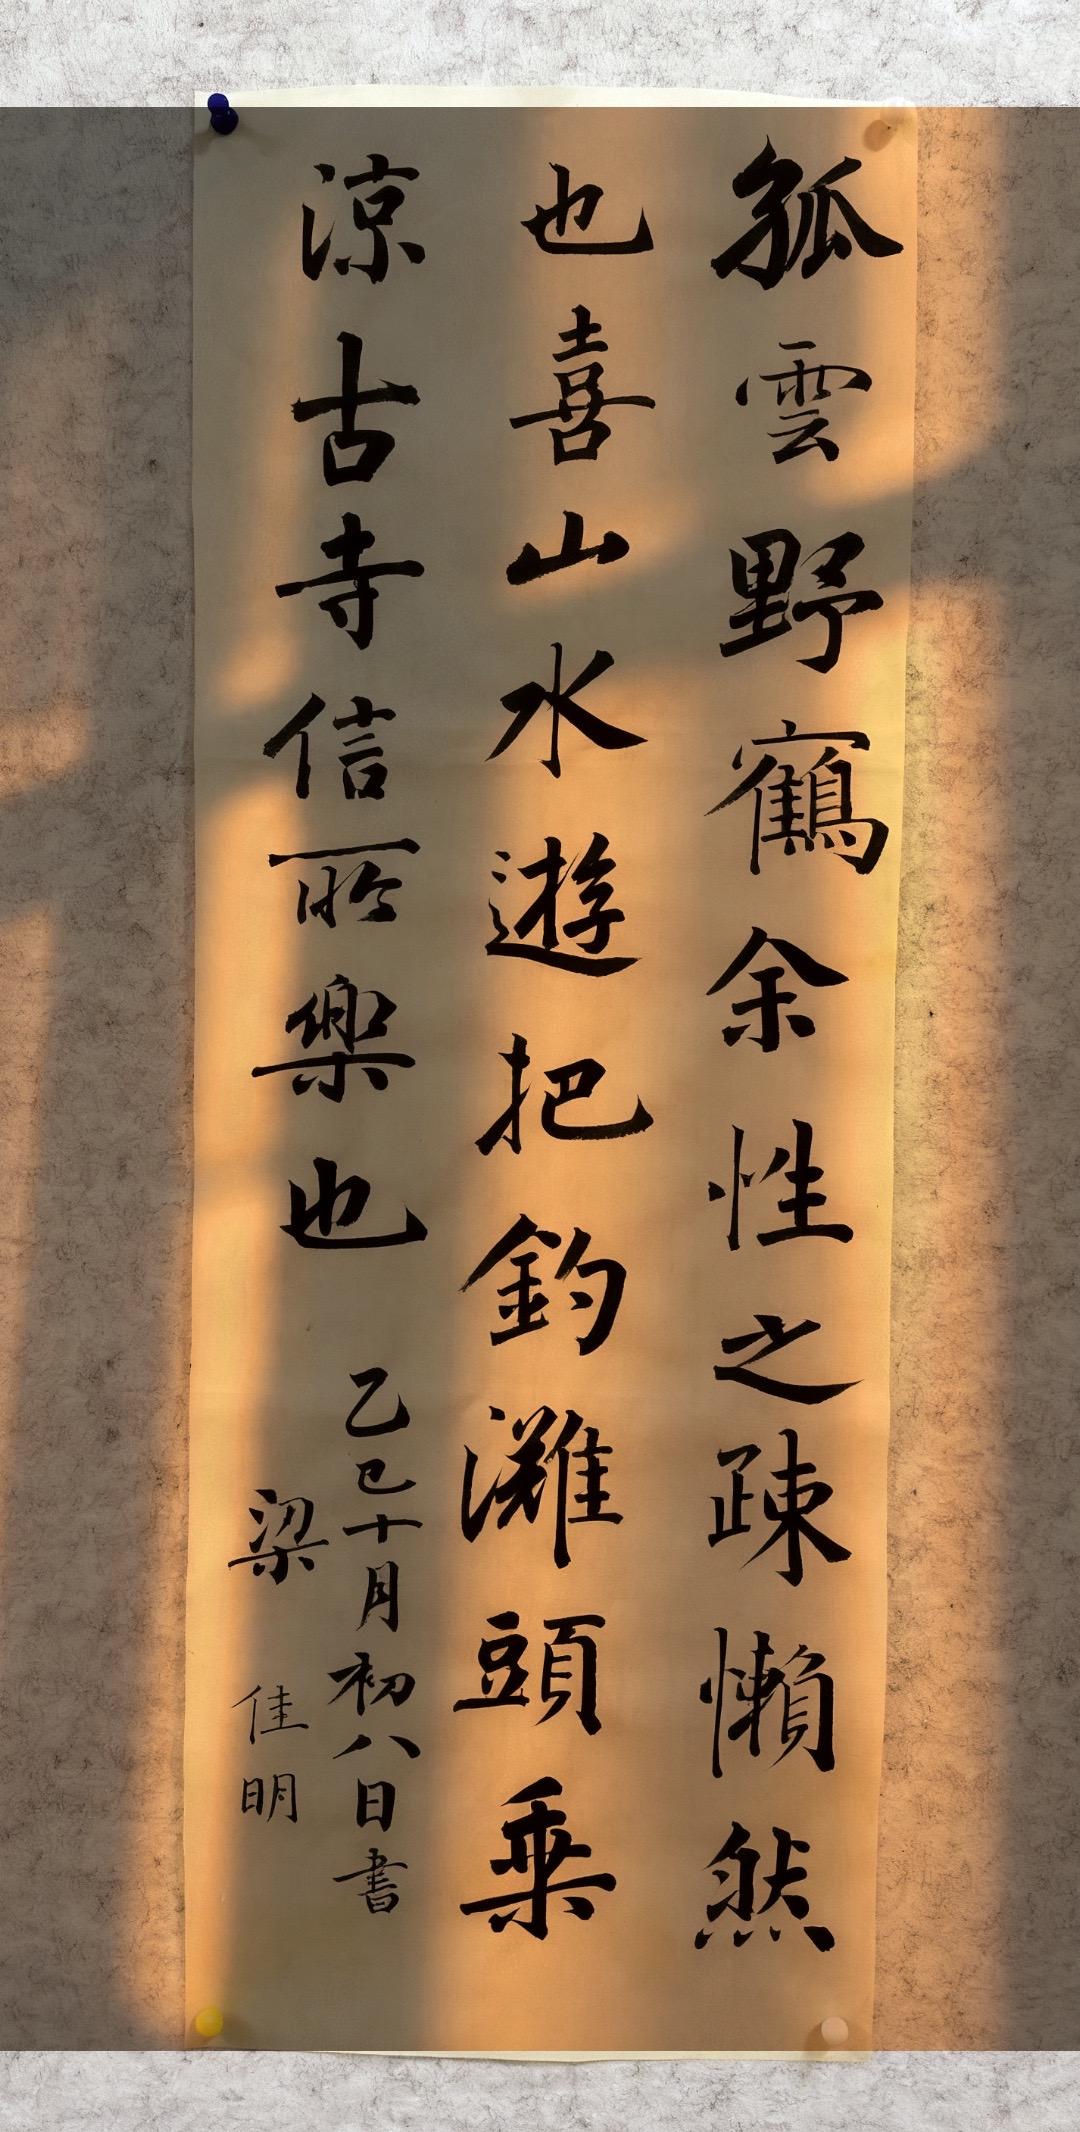 孤雲野鶴余性之疎懶然
也喜山水遊把釣灘頭乘
涼古寺信所樂也
乙巳十月初八日書
梁佳明